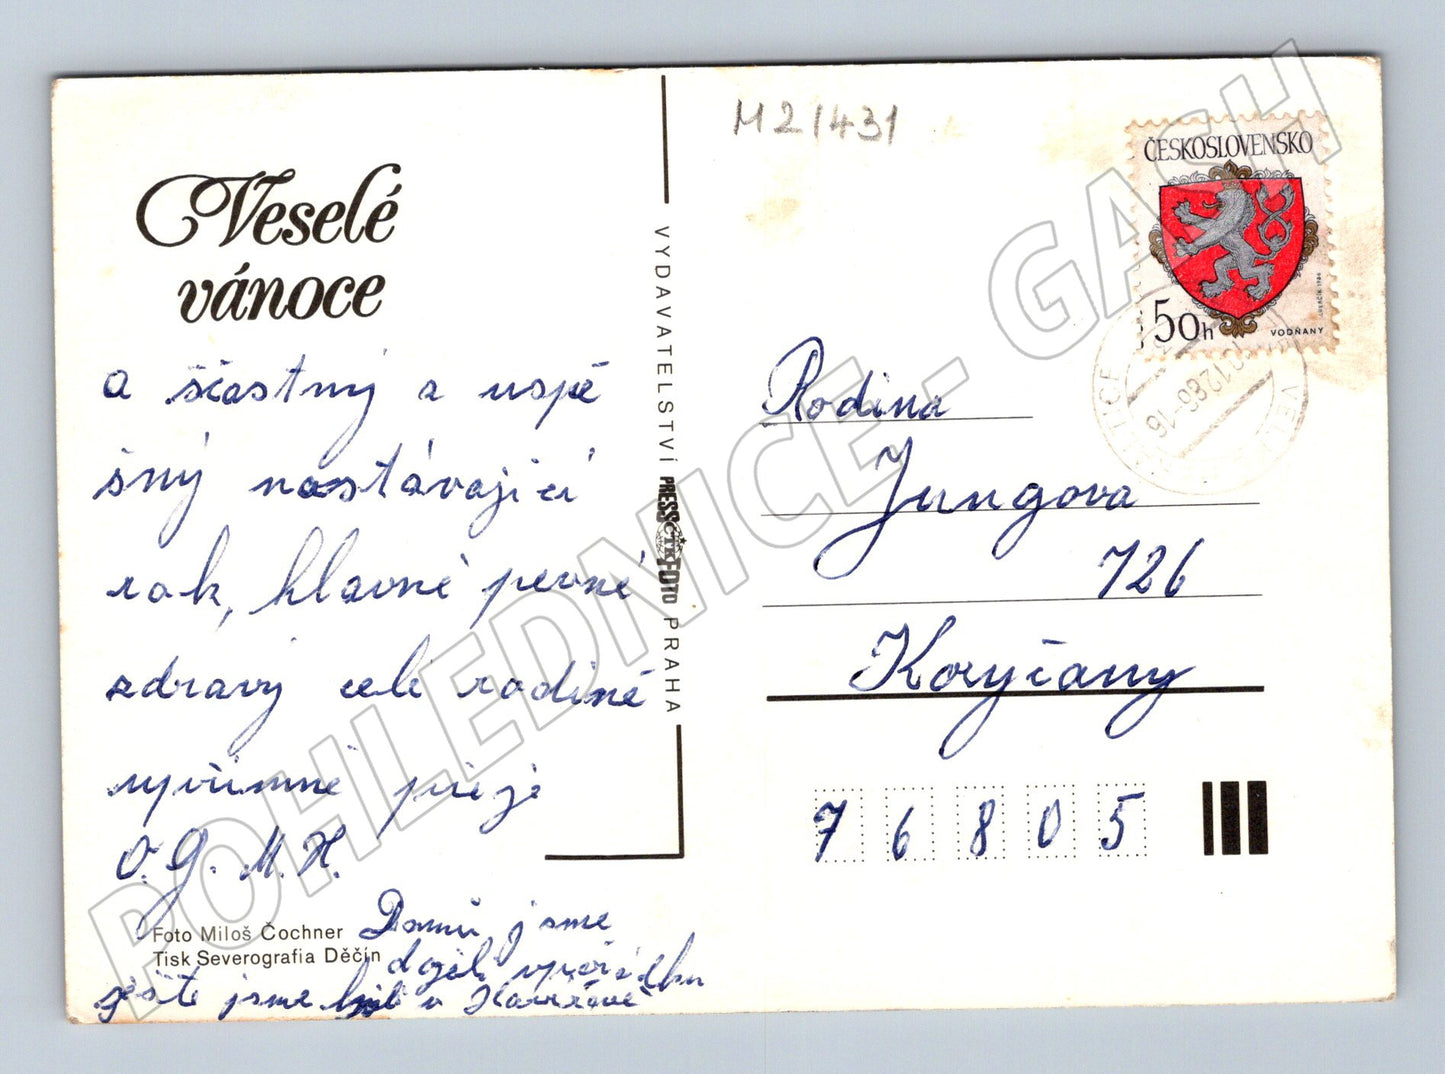 M21431
Veselé
vánoce
a šťastný a uspě
šný nastávající
rok, hlavně pevné
zdraví celé rodině
upřímně přeje
O. G. M. H.
Foto Miloš Čochner
Tisk Severografia Děčín
Domů jsme
dojeli v pořádku
ještě jsme byli v
VYDAVATELSTVÍ PRESSFOTO PRAHA
ČTK
ČESKOSLOVENSKO
50h
VODŇANY
1986
-16
Rodina
Jungova
726
Koryčany
7 6 8 0 5
POHLEDNICE - GASH